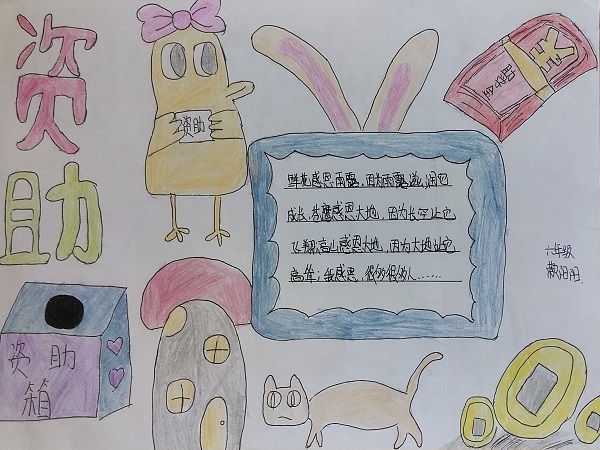 资助
资助
助学金
鲜花感恩雨露,因为雨露滋润它
成长,苍鹰感恩大地,因为长空让它
飞翔;高山感恩大地,因为大地让它
高耸;我感恩,很多很多人……
六年级
资助
箱